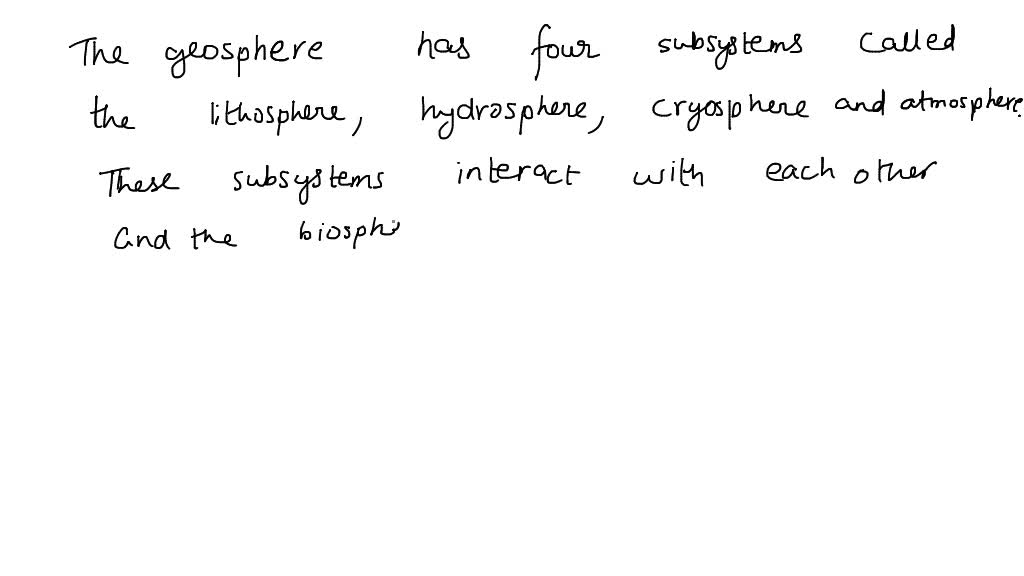 The geosphere has four subsystems called
the lithosphere, hydrosphere, cryosphere and atmosphere.
These subsystems interact with each other
and the biosph